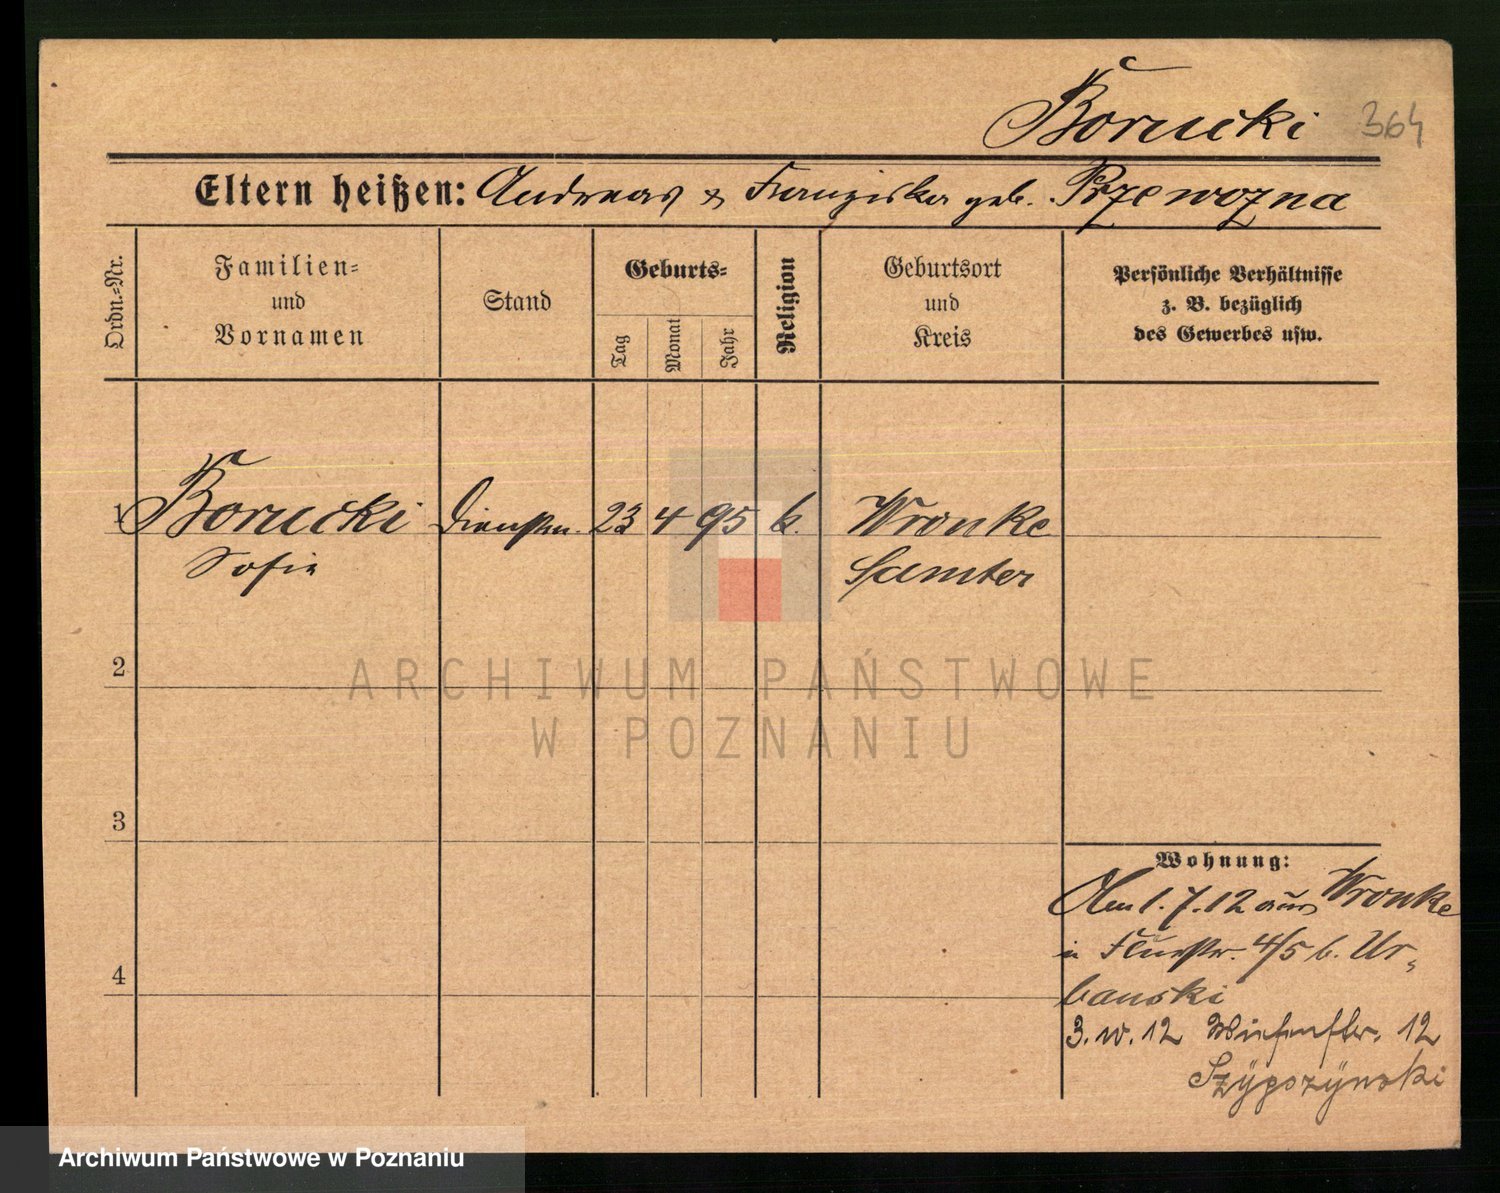 Borucki 364
Eltern heißen: Andreas & Franziska geb. Przewozna
Ordn.-Nr.
Familien-
und
Vornamen
Stand
Geburts-
Tag
Monat
Jahr
Religion
Geburtsort
und
Kreis
Persönliche Verhältnisse
z. B. bezüglich
des Gewerbes usw.
1 Borucki Dienstm. 23 4 95 k. Wronke
Sofie Samter
ARCHIWUM PAŃSTWOWE
W POZNANIU
2
3
4
Wohnung:
Am 1.7.12 aus Wronke
in Flurstr. 4/5 b. Ur-
banski
3. 12 Wiesenstr. 12
Archiwum Państwowe w Poznaniu